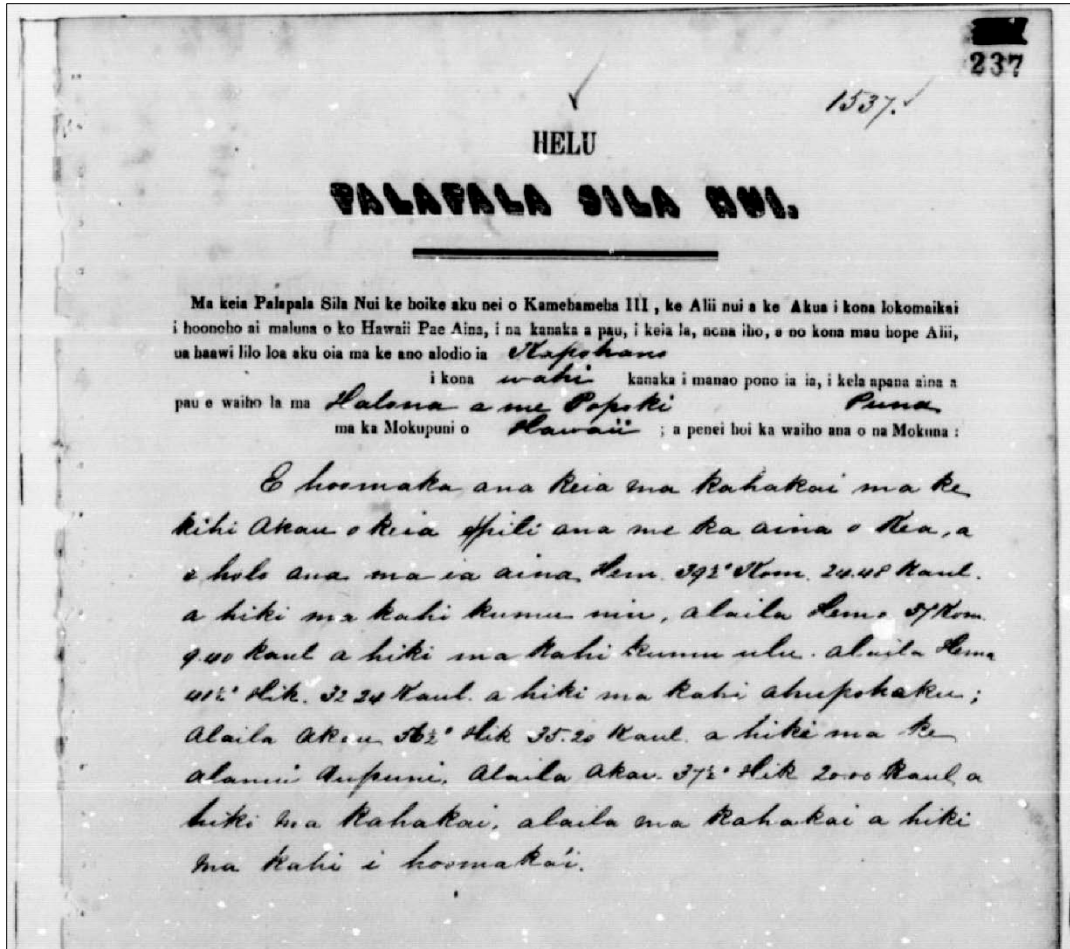 237
1537.
HELU
PALAPALA SILA NUI.
Ma keia Palapala Sila Nui ke hoike aku nei o Kamehameha III, ke Alii nui a ke Akua i kona lokomaikai
i hoonoho ai maluna o ko Hawaii Pae Aina, i na kanaka a pau, i keia la, nona iho, a no kona mau hope Alii,
ua haawi lilo loa aku oia ma ke ano alodio ia Kapohano
i kona wahi kanaka i manao pono ia ia, i kela apana aina a
pau e waiho la ma Halona a me Popoki Puna
ma ka Mokupuni o Hawaii ; a penei hoi ka waiho ana o na Mokuna :
E hoomaka ana keia ma kahakai ma ke
kihi Akau o keia e pili ana me ka aina o Kea, a
e holo ana ma ia aina Hem. 39½° Kom. 24.48 Kaul.
a hiki ma kahi kumu niu, alaila Hema 37 Kom.
9.40 Kaul a hiki ma kahi kumu ulu. alaila Hema
41½° Hik. 32 24 Kaul. a hiki ma kahi ahupohaku;
Alaila Akau 36½° Hik 35.20 Kaul. a hiki ma ke
alanui Aupuni, Alaila Akau. 37½° Hik 20.00 Kaul a
hiki ma Kahakai, alaila ma Kahakai a hiki
ma Kahi i hoomaka'i.